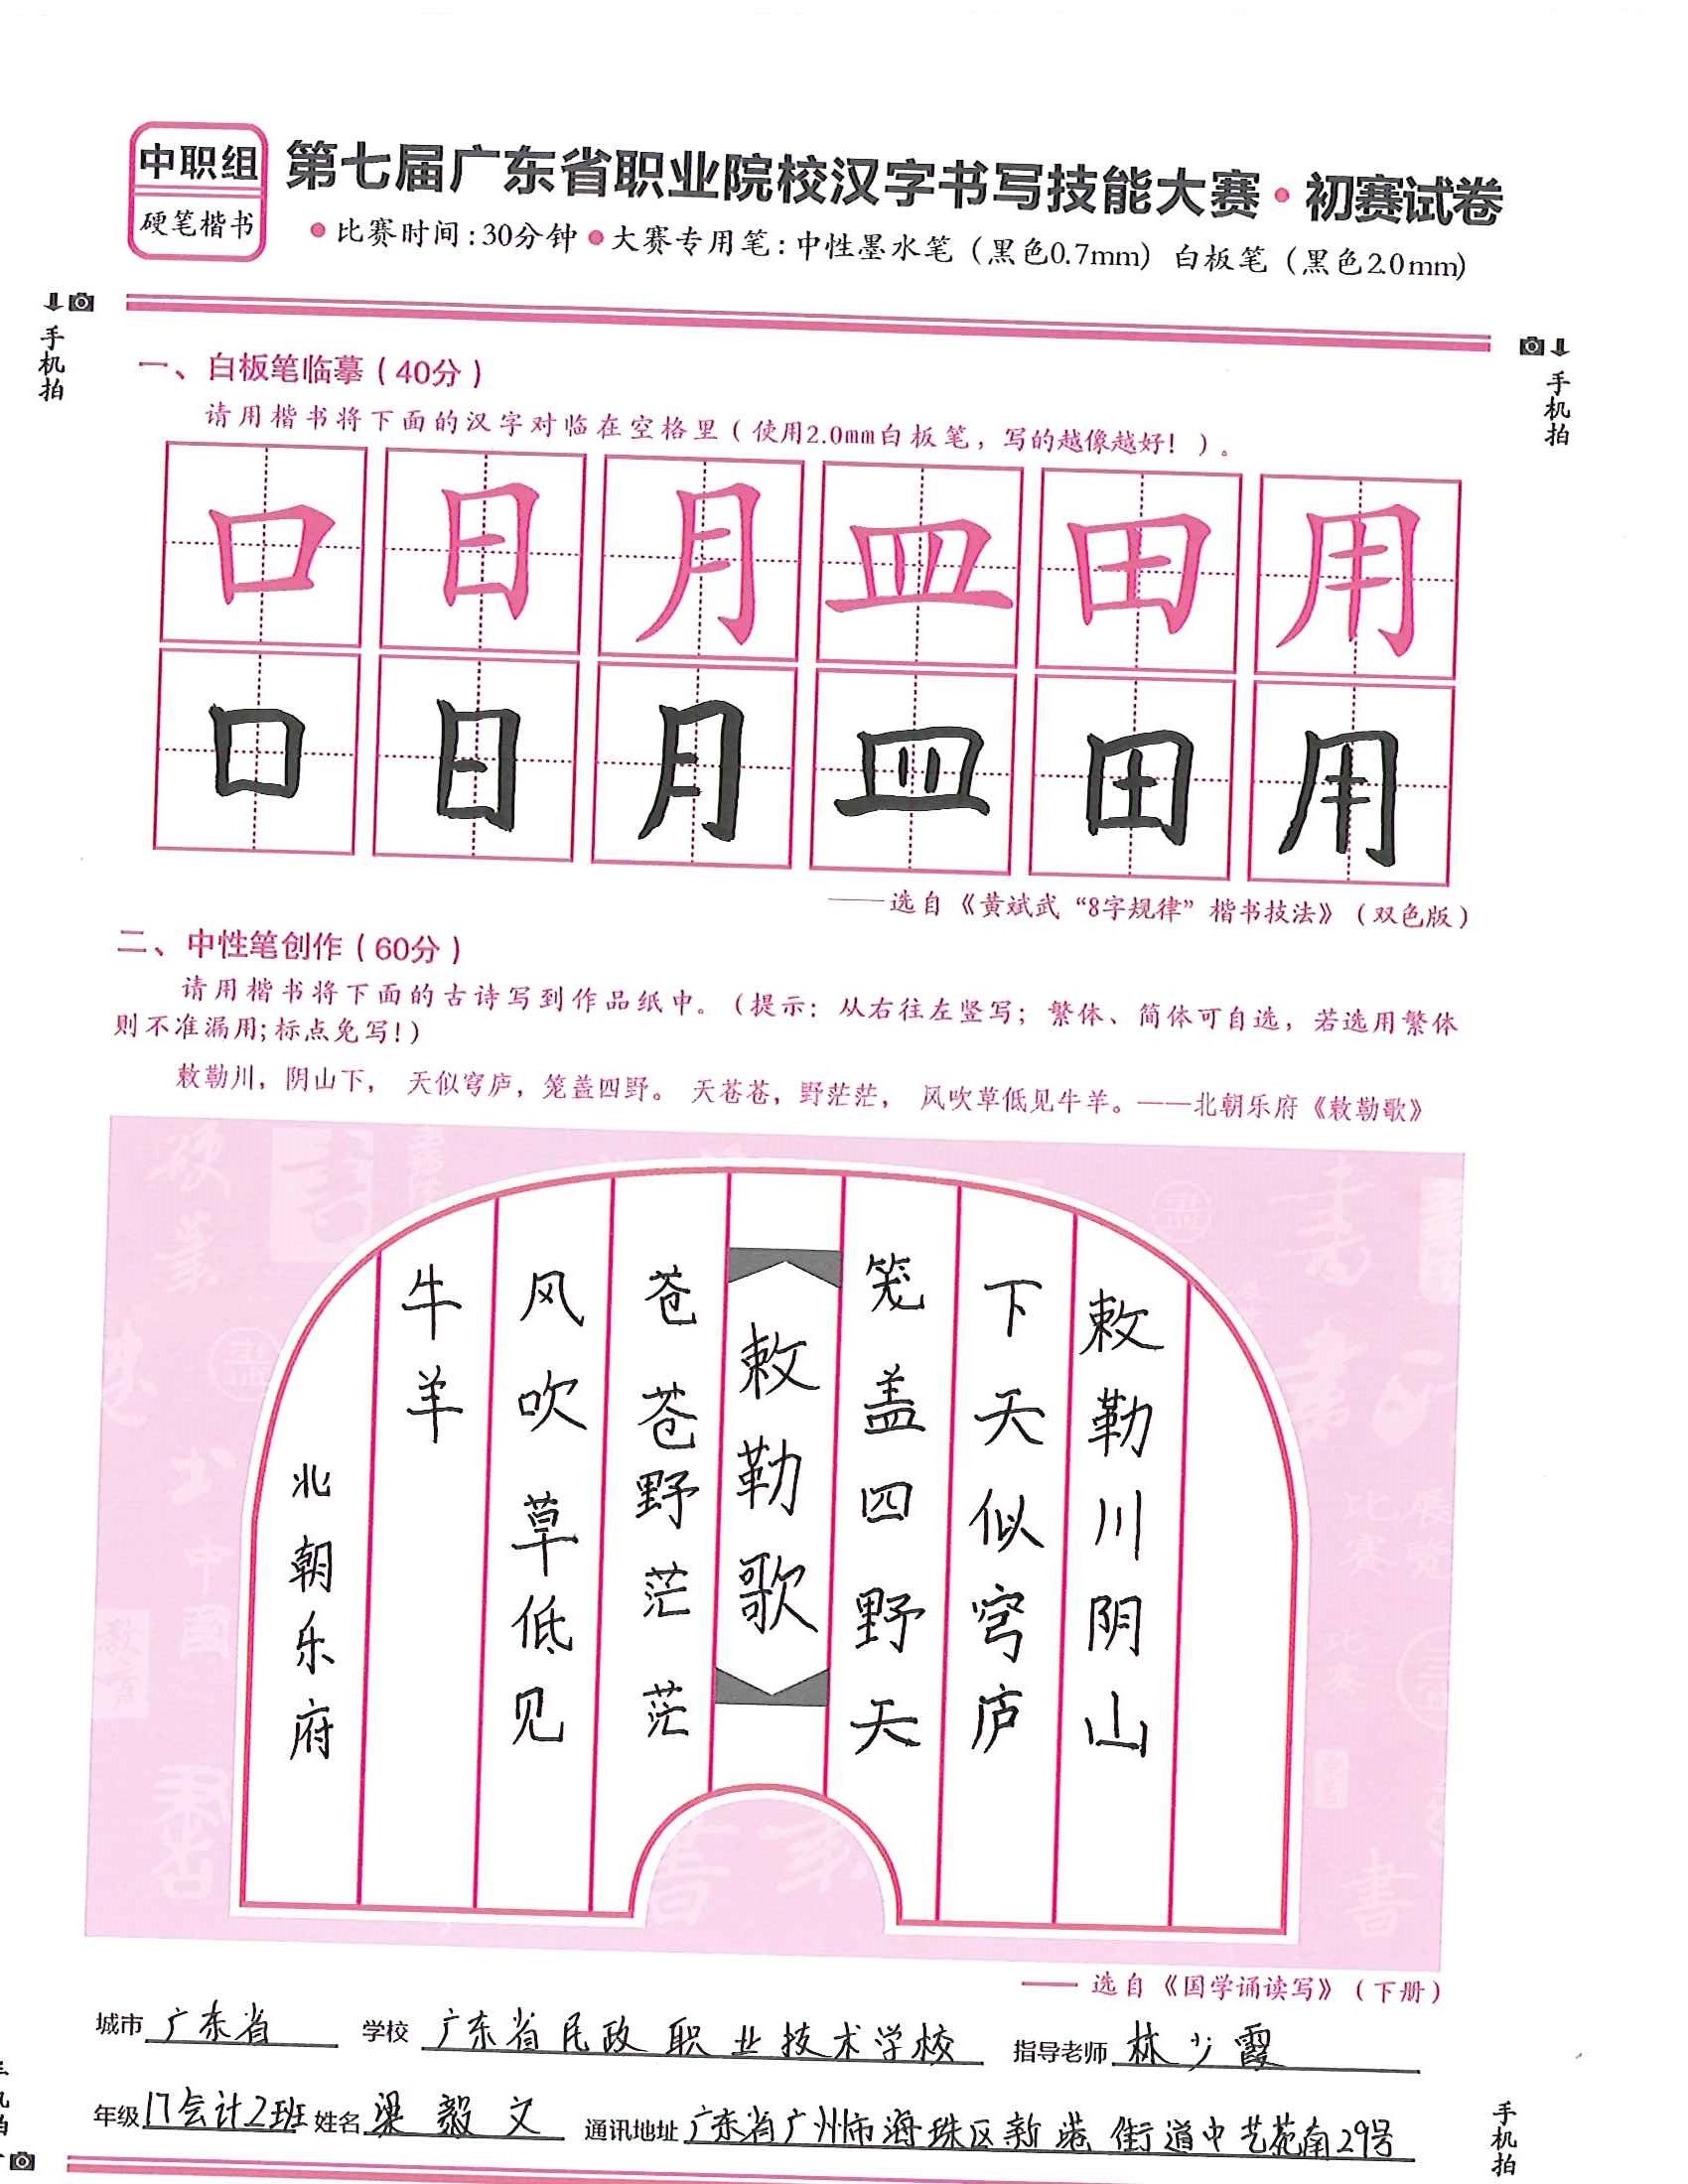 中职组
硬笔楷书
第七届广东省职业院校汉字书写技能大赛·初赛试卷
●比赛时间:30分钟●大赛专用笔:中性墨水笔（黑色0.7mm）白板笔（黑色2.0mm）
手机拍
手机拍
一、白板笔临摹（40分）
请用楷书将下面的汉字对临在空格里（使用2.0mm白板笔，写的越像越好！）。
口 日 月 皿 田 用
口 日 月 皿 田 用
——选自《黄斌武“8字规律”楷书技法》（双色版）
二、中性笔创作（60分）
请用楷书将下面的古诗写到作品纸中。（提示：从右往左竖写；繁体、简体可自选，若选用繁体
则不准漏用;标点免写!）
敕勒川，阴山下， 天似穹庐，笼盖四野。 天苍苍，野茫茫， 风吹草低见牛羊。——北朝乐府《敕勒歌》
敕勒川阴山
下天似穹庐
笼盖四野天
敕勒歌
苍苍野茫茫
风吹草低见
牛羊
北朝乐府
—— 选自《国学诵读写》（下册）
城市 广东省 学校 广东省民政职业技术学校 指导老师 林少霞
年级 17会计2班 姓名 梁毅文 通讯地址 广东省广州市海珠区新港街道中艺苑南29号
手机拍